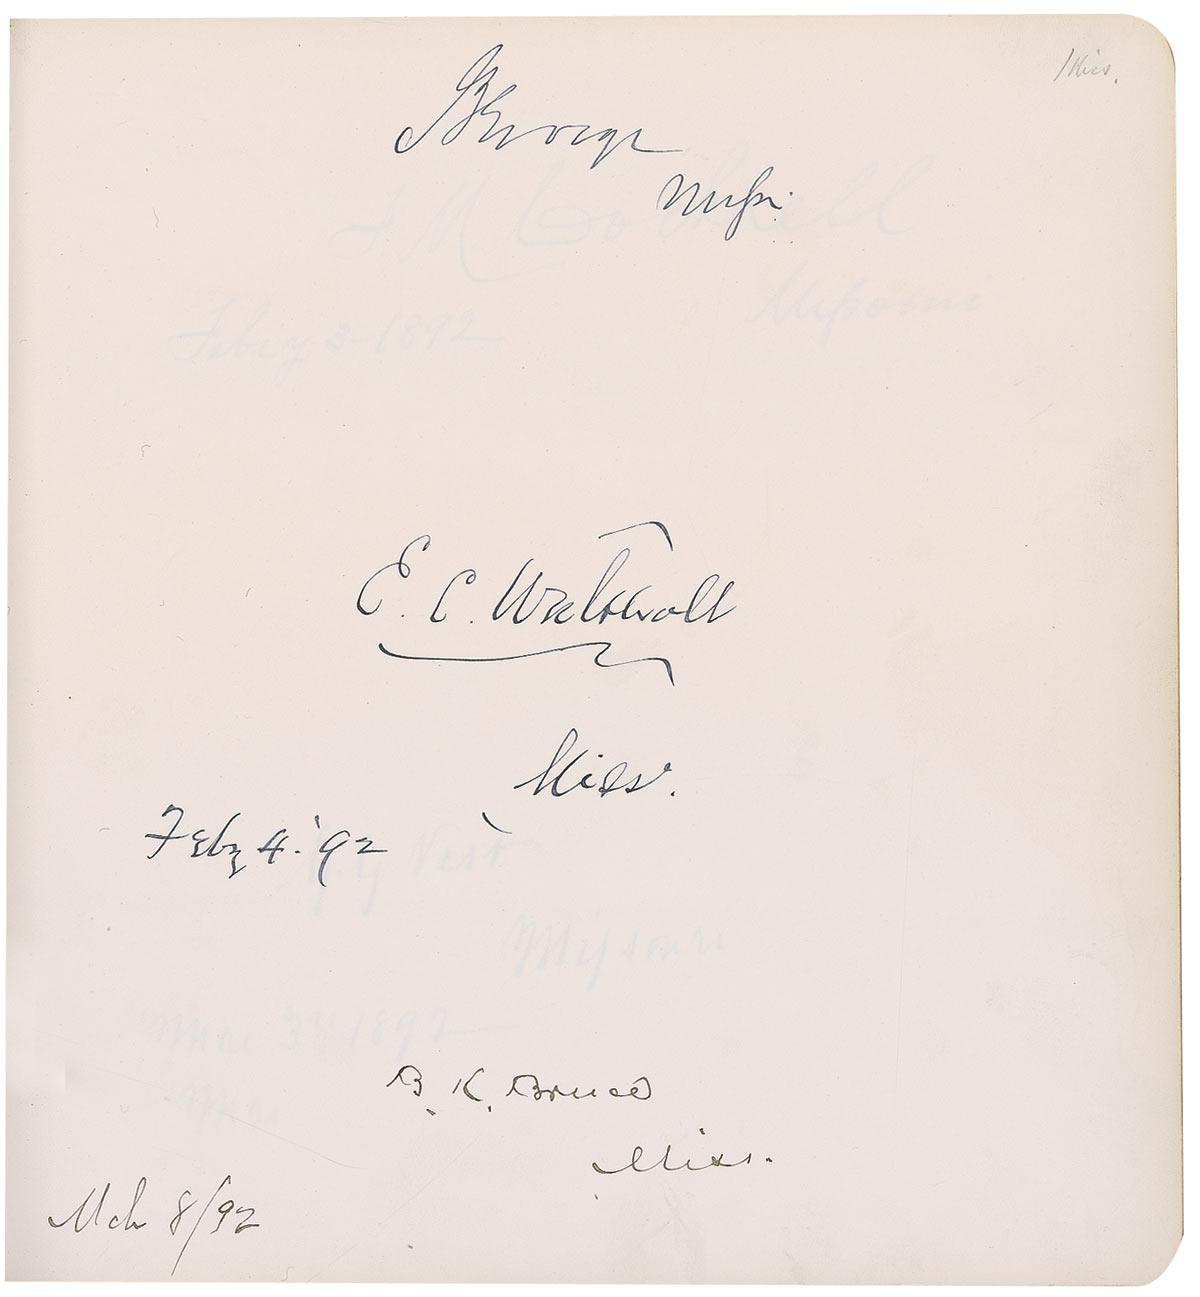 Miss.
JZGeorge
Missi.
F. M. Cockrell
Missouri
Feby 3 1892
E. C. Walthall
Miss.
Feby 4. '92
G. G. Vest
Missouri
Mar 3rd 1892
B. K. Bruce
Miss.
Mch 8/92